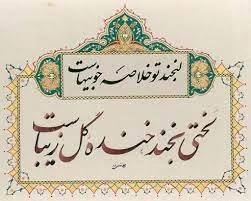 لبخند تو خلاصه خوبیهاست
لختی بخند خنده گل زیباست